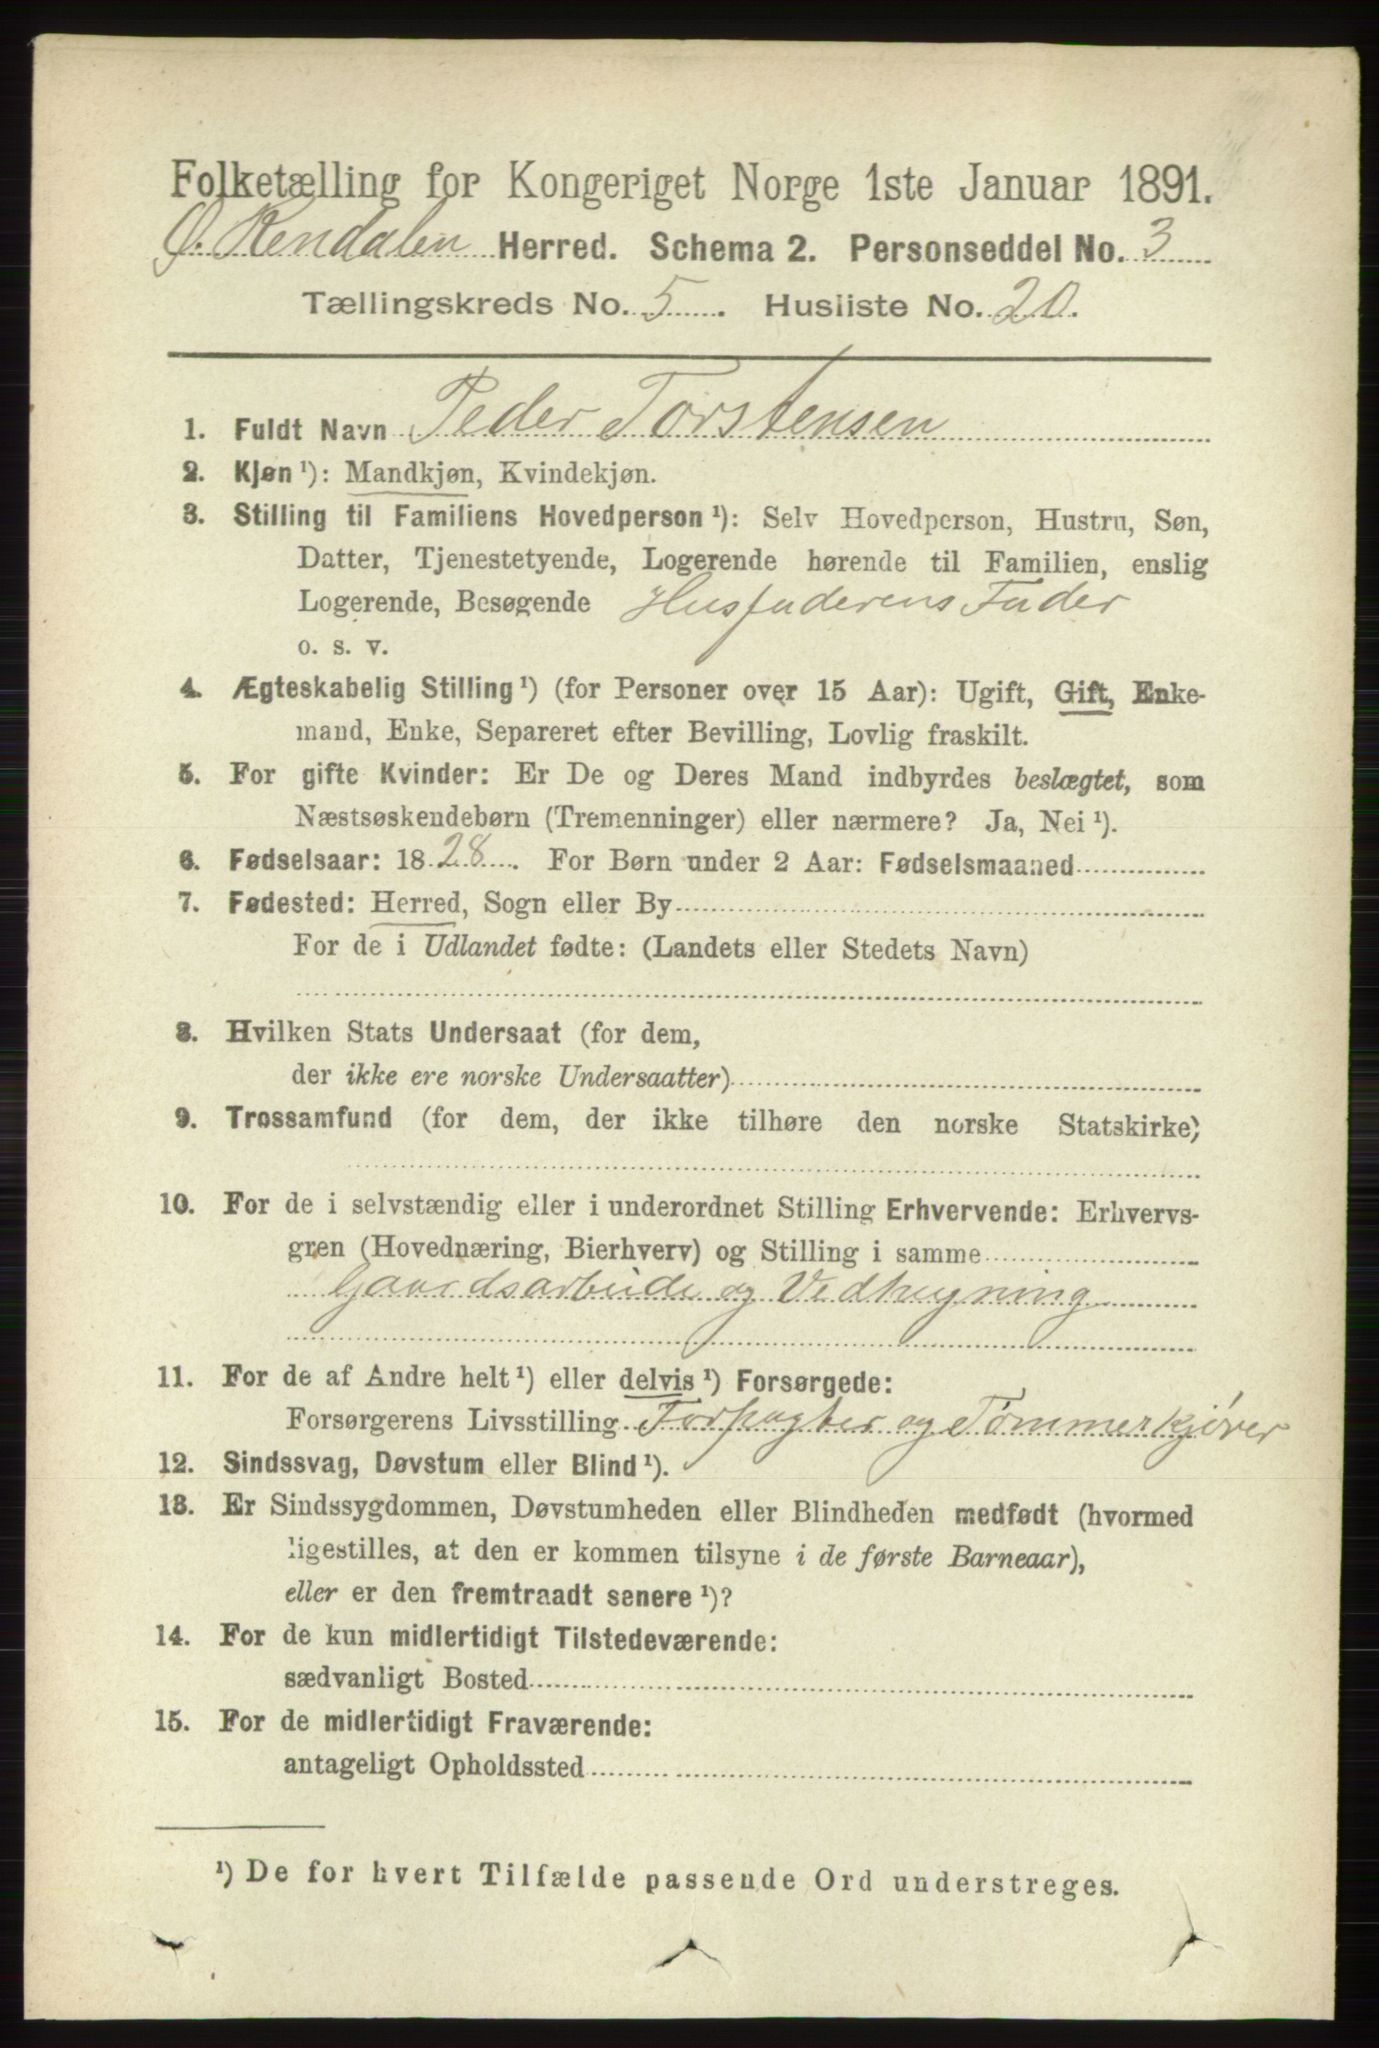 Folketælling for Kongeriget Norge 1ste Januar 1891.
Ø. Rendalen Herred. Schema 2. Personseddel No. 3
Tællingskreds No. 5. Husliste No. 20.
1. Fuldt Navn Peder Torstensen
2. Kjøn¹): Mandkjøn, Kvindekjøn.
3. Stilling til Familiens Hovedperson¹): Selv Hovedperson, Hustru, Søn,
Datter, Tjenestetyende, Logerende hørende til Familien, enslig
Logerende, Besøgende Husfaderens Fader
o. s. v.
4. Ægteskabelig Stilling¹) (for Personer over 15 Aar): Ugift, Gift, Enke-
mand, Enke, Separeret efter Bevilling, Lovlig fraskilt.
5. For gifte Kvinder: Er De og Deres Mand indbyrdes beslægtet, som
Næstsøskendebørn (Tremenninger) eller nærmere? Ja, Nei¹).
6. Fødselsaar: 1828. For Børn under 2 Aar: Fødselsmaaned
7. Fødested: Herred, Sogn eller By
For de i Udlandet fødte: (Landets eller Stedets Navn)
8. Hvilken Stats Undersaat (for dem,
der ikke ere norske Undersaatter)
9. Trossamfund (for dem, der ikke tilhøre den norske Statskirke)
10. For de i selvstændig eller i underordnet Stilling Erhvervende: Erhvervs-
gren (Hovednæring, Bierhverv) og Stilling i samme
Gaardsarbeide og Vedhugning
11. For de af Andre helt¹) eller delvis¹) Forsørgede:
Forsørgerens Livsstilling Forpagter og Tømmerkjører
12. Sindssvag, Døvstum eller Blind¹).
13. Er Sindssygdommen, Døvstumheden eller Blindheden medfødt (hvormed
ligestilles, at den er kommen tilsyne i de første Barneaar),
eller er den fremtraadt senere¹)?
14. For de kun midlertidigt Tilstedeværende:
sædvanligt Bosted
15. For de midlertidigt Fraværende:
antageligt Opholdssted
¹) De for hvert Tilfælde passende Ord understreges.